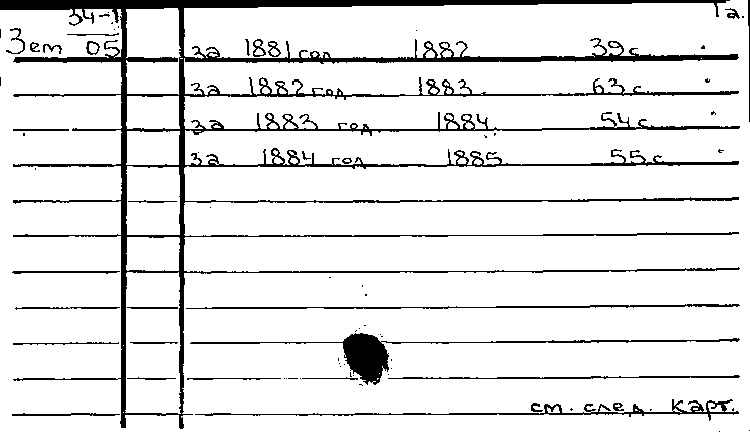 34-1 Га.
Зет 05 за 1881 год 1882 39 с.
за 1882 год 1883. 63 с.
за 1883 год 1884. 54 с.
за 1884 год 1885. 55 с.
см. след. карт.